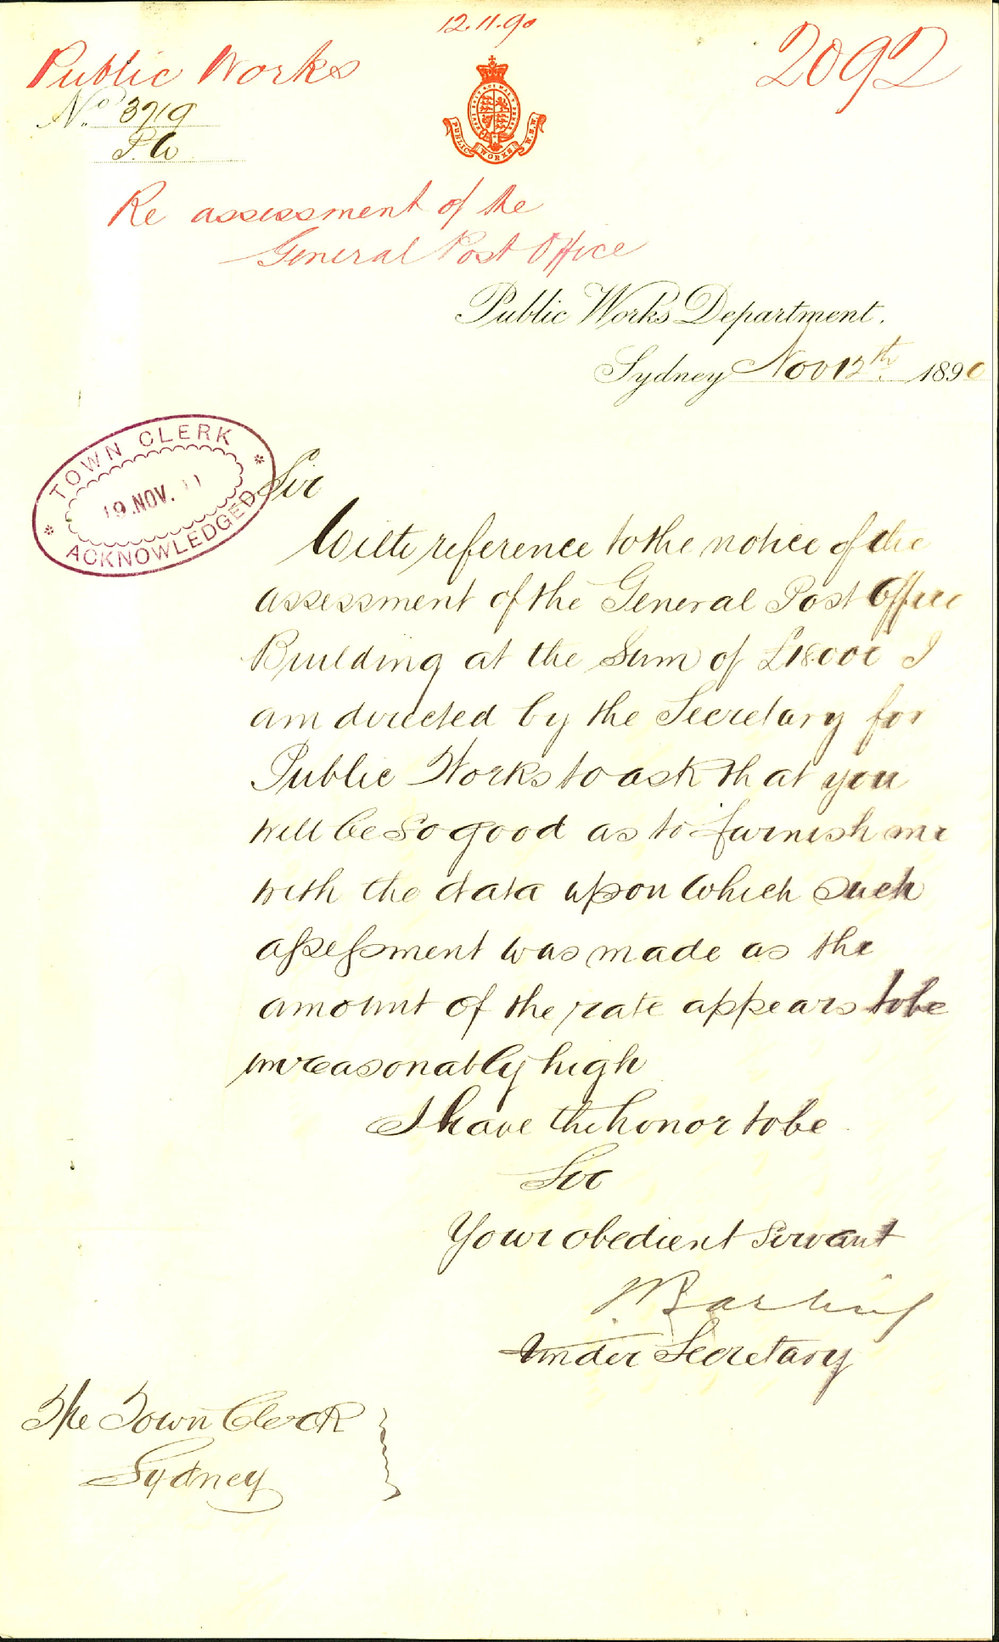 12.11.90
Public Works
2092
No. 3719
P.W
PUBLIC WORKS N.S.W.
Re assessment of the
General Post Office
Public Works Department.
Sydney Nov 12th 1890
TOWN CLERK
19 NOV.
ACKNOWLEDGED
Sir
With reference to the notice of the
assessment of the General Post Office
Building at the Sum of £18000 I
am directed by the Secretary for
Public Works to ask that you
will be so good as to furnish me
with the data upon which such
assessment was made as the
amount of the rate appears to be
unreasonably high
I have the honor to be
Sir
Your obedient servant
Barling
Under Secretary
The Town Clerk
Sydney